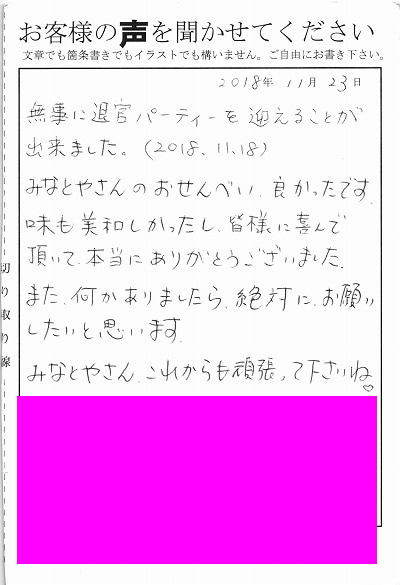 お客様の声を聞かせてください
文章でも箇条書きでもイラストでも構いません。ご自由にお書き下さい。
2018年 11月 23日
無事に退官パーティーを迎えることが
出来ました。(2018.11.18)
みなとやさんのおせんべい、良かったです
味も美和しかったし、皆様に喜んで
頂いて、本当にありがとうございました。
また、何かありましたら、絶対に、お願い
したいと、思います。
みなとやさん、これからも頑張って下さいね♡
切り取り線